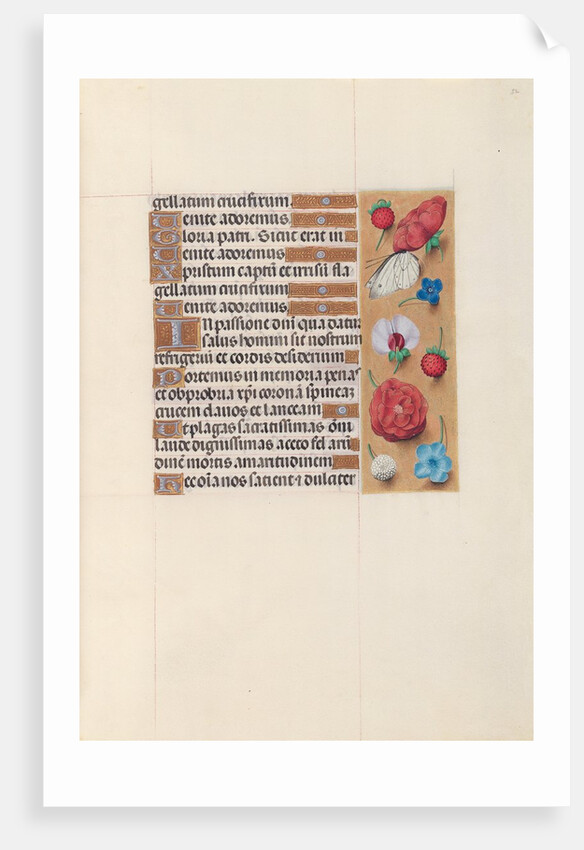 32
gellatum crucifixum.
Uenite adoremus.
Gloria patri. Sicut erat in
Uenite adoremus
Xpristum captū et irrisū fla
gellatum crucifixum
Uenite adoremus.
In passione dn̄i qua datur
salus homini sit nostrum
refrigeriū et cordis desiderium
Portemus in memoria penas
et obprobria xp̄i coronā spineaz
crucem clauos et lanceam
Et plagas sacratissimas om̄i
laude dignissimas aceto fel arūn
dinē mortis amaritudinem
Hec oīa nos satient ⁊ dulciter